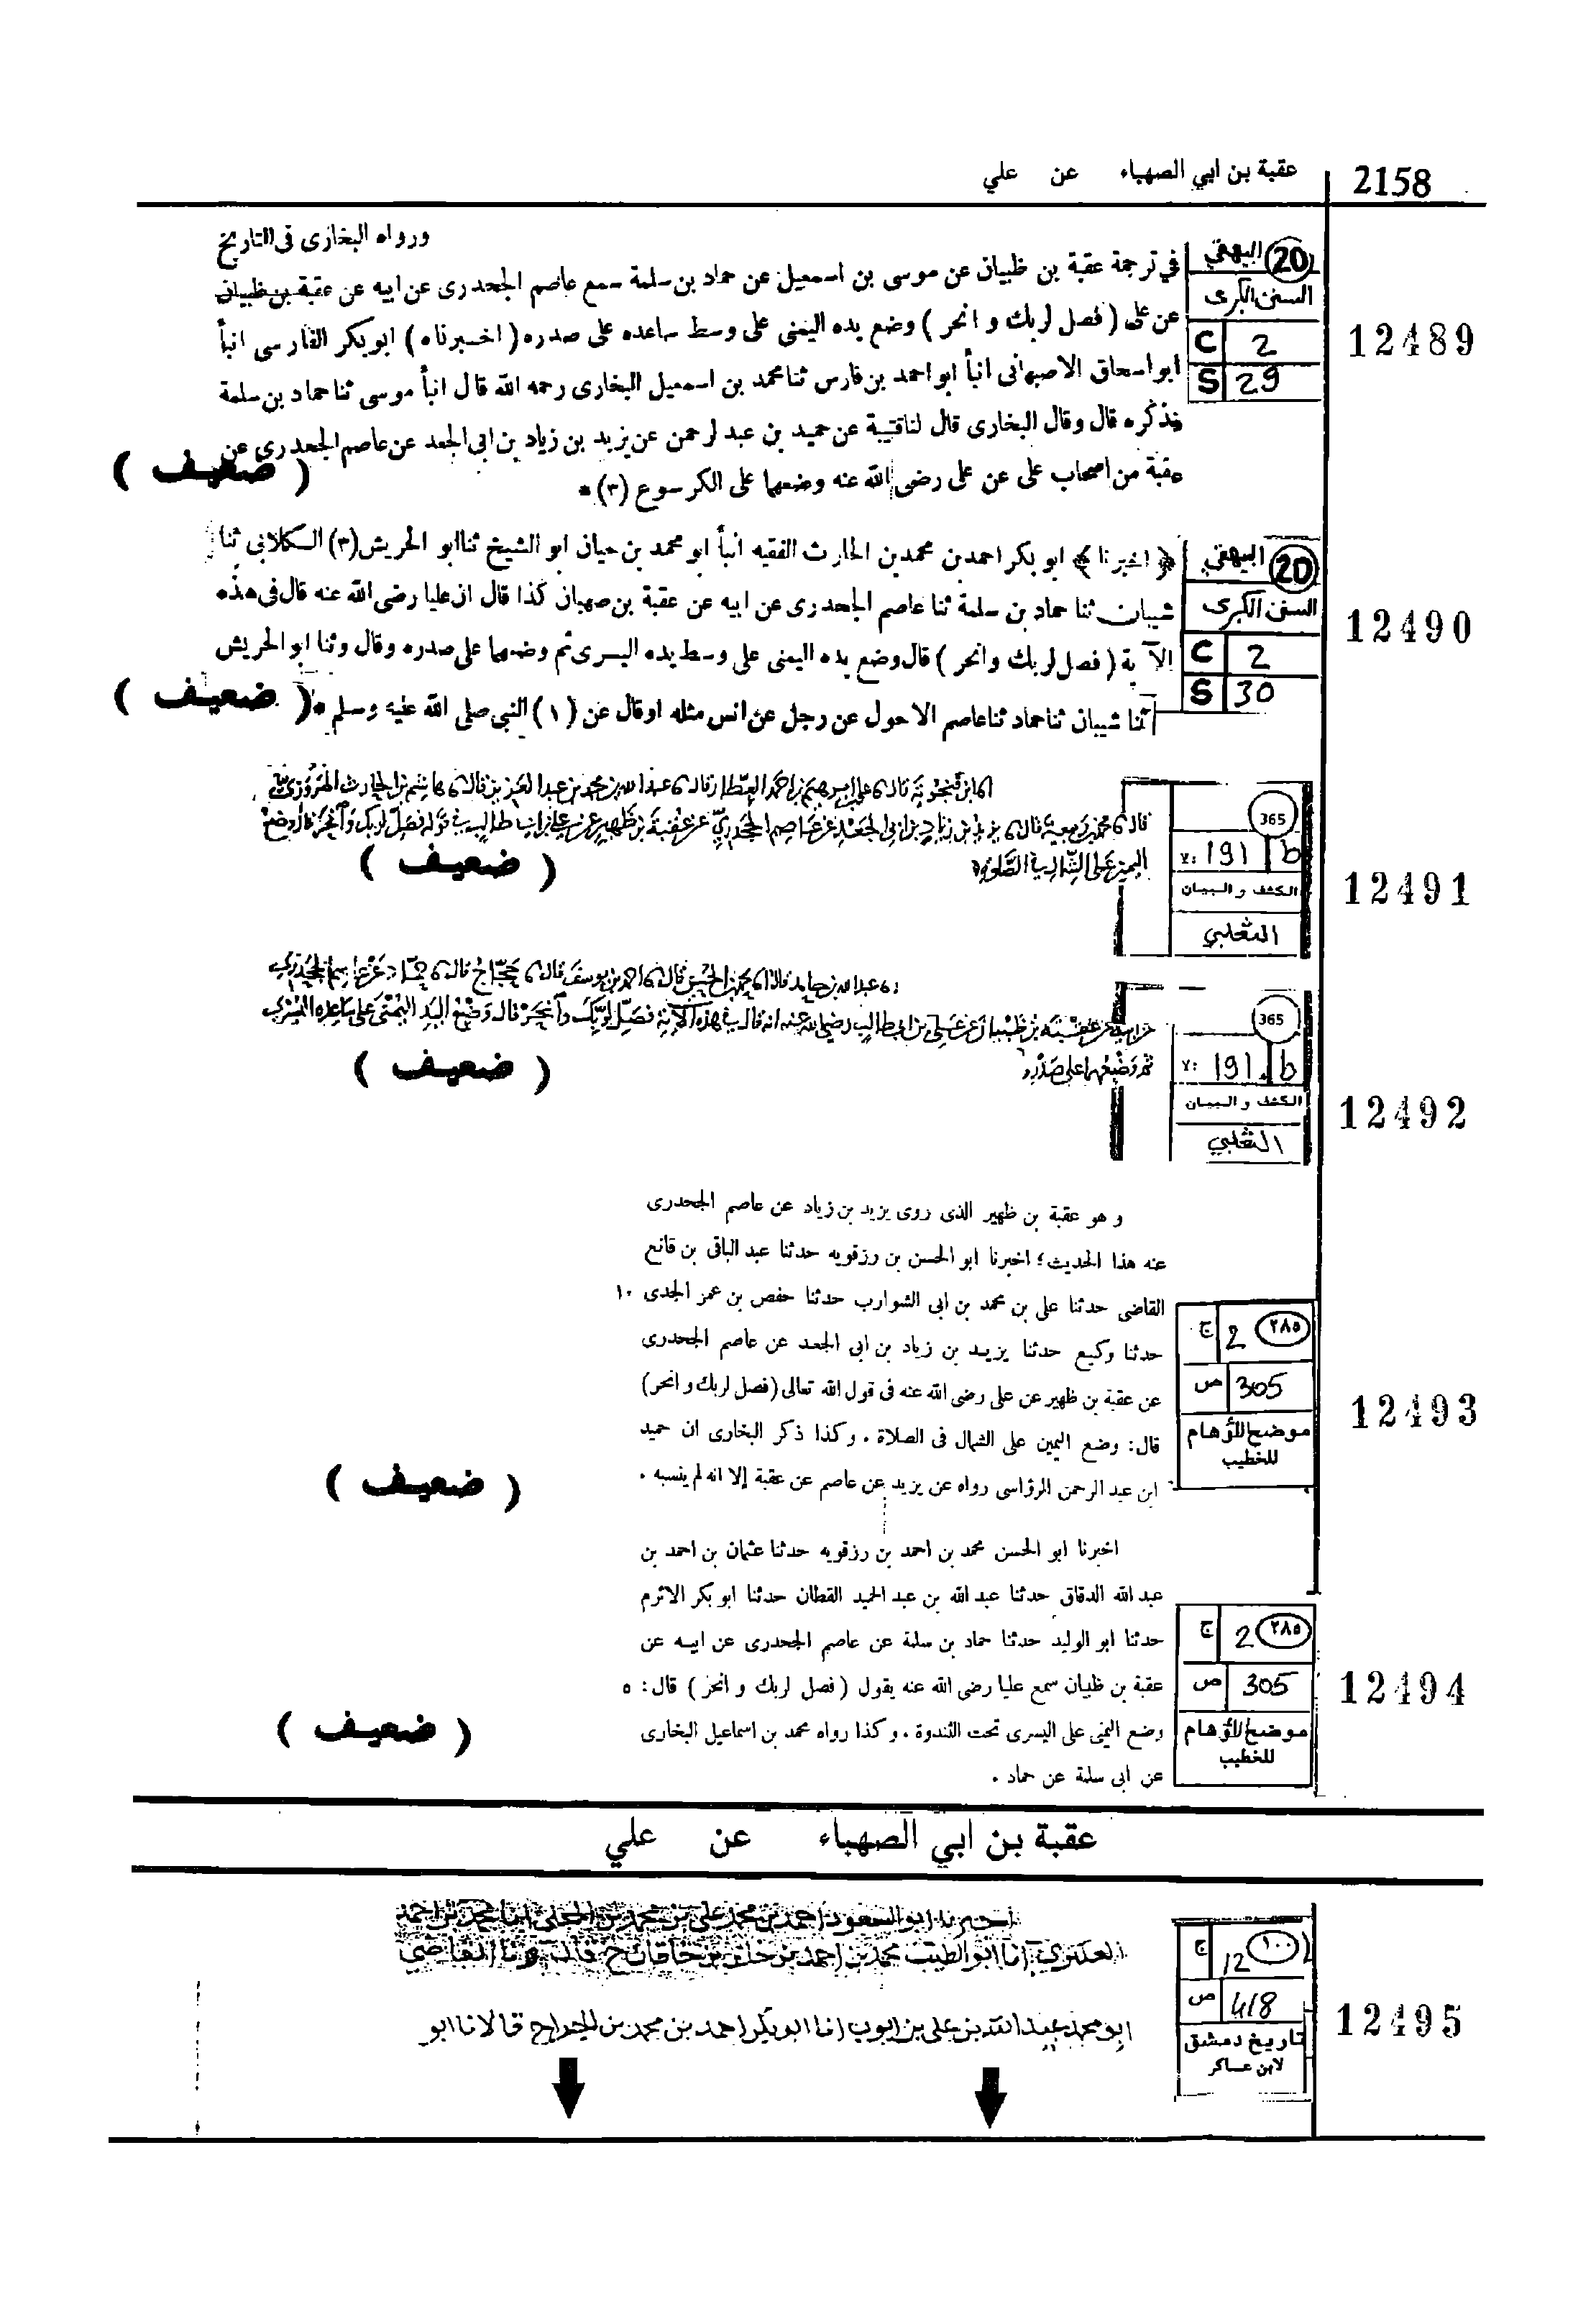 2158
عقبة بن ابي الصهباء عن علي
ورواه البخارى فى التاريخ
في ترجمة عقبة بن ظبيان عن موسى بن اسمعيل عن حماد بن سلمة سمع عاصم الجحدرى عن ابيه عن عقبة بن ظبيان
عن على ( فصل لربك و انحر ) وضع يده اليمنى على وسط ساعده على صدره ( اخبرناه ) ابو بكر الفارسى انبأ
ابو اسحاق الاصبهانى انبأ ابو احمد بن فارس ثنا محمد بن اسمعيل البخارى رحمه الله قال انبأ موسى ثنا حماد بن سلمة
فذكره قال وقال البخارى قال لنا قتيبة عن حميد بن عبد لرحمن عن يزيد بن زياد بن ابى الجعد عن عاصم الجحدرى عن
عقبة من اصحاب على عن على رضى الله عنه وضعهما على الكرسوع (٣) *
( ضعيف )
20 البيهقي
السنن الكبرى
C 2
S 29
12489
﴿ اخبرنا ﴾ ابو بكر احمد بن محمد بن الحارث الفقيه انبأ ابو محمد بن حيان ابو الشيخ ثنا ابو الحريش (٣) الكلابي ثنا
شيبان ثنا حماد بن سلمة ثنا عاصم الجحدرى عن ابيه عن عقبة بن صهبان كذا قال ان عليا رضى الله عنه قال فى هذه
الآية ( فصل لربك وانحر ) قال وضع يده اليمنى على وسط يده اليسرى ثم وضعها على صدره وقال وثنا ابو الحريش
ثنا شيبان ثنا حماد ثنا عاصم الاحول عن رجل عن انس مثله او قال عن (١) النبي صلى الله عليه وسلم *
( ضعيف )
20 البيهقي
السنن الكبرى
C 2
S 30
12490
قال
بن زياد بن ابي الجعد عن عاصم الجحدري عن عقبة بن ظهير عن علي بن ابي طالب في قوله فصل لربك وانحر قال وضع
اليمين على الشمال في الصلوة
( ضعيف )
365
٧: 191 b
الكشف و البيان
الثعلبي
12491
عبد الله بن حامد قال محمد بن الحسين قال احمد بن يوسف قال حجاج قال حماد عن عاصم الجحدري
عن ابيه عن عقبة بن ظبيان عن علي بن ابي طالب رضي الله عنه انه قال في هذه الآية فصل لربك وانحر قال وضع اليد اليمنى على ساعده اليسرى
ثم وضعهما على صدره
( ضعيف )
365
٧: 191. b
الكشف و البيان
الثعلبي
12492
و هو عقبة بن ظهير الذى روى يزيد بن زياد عن عاصم الجحدرى
عنه هذا الحديث؛ اخبرنا ابو الحسن بن رزقويه حدثنا عبد الباقى بن قانع
القاضى حدثنا على بن محمد بن ابى الشوارب حدثنا حفص بن عمر الجدى ١٠
حدثنا وكيع حدثنا يزيد بن زياد بن ابى الجعد عن عاصم الجحدرى
عن عقبة بن ظهير عن على رضى الله عنه فى قول الله تعالى (فصل لربك و انحر)
قال: وضع اليمين على الشمال فى الصلاة . وكذا ذكر البخارى ان حميد
ابن عبد الرحمن الرؤاسى رواه عن يزيد عن عاصم عن عقبة إلا انه لم ينسبه .
( ضعيف )
٢٨٥ 2 ج
305 ص
موضح الأوهام
للخطيب
12493
اخبرنا ابو الحسن محمد بن احمد بن رزقويه حدثنا عثمان بن احمد بن
عبد الله الدقاق حدثنا عبد الله بن عبد الحميد القطان حدثنا ابو بكر الاثرم
حدثنا ابو الوليد حدثنا حماد بن سلمة عن عاصم الجحدرى عن ابيه عن
عقبة بن ظبيان سمع عليا رضى الله عنه يقول ( فصل لربك و انحر ) قال: ٥
وضع اليمنى على اليسرى تحت الثندوة . و كذا رواه محمد بن اسماعيل البخارى
عن ابى سلمة عن حماد .
( ضعيف )
٢٨٥ 2 ج
305 ص
موضح الأوهام
للخطيب
12494
عقبة بن ابي الصهباء عن علي
اخبرنا ابو السعود احمد بن محمد علي بن محمد بن المجلي انا محمد بن احمد
العكبري انا ابو الطيب محمد بن احمد بن خلف بن خاقان ح قال و نا القاضي
ابو محمد عبد الله بن علي بن ايوب انا ابو بكر احمد بن محمد بن الجراح قالا نا ابو
١٠٠ 12 ج
418 ص
تاريخ دمشق
لابن عساكر
12495